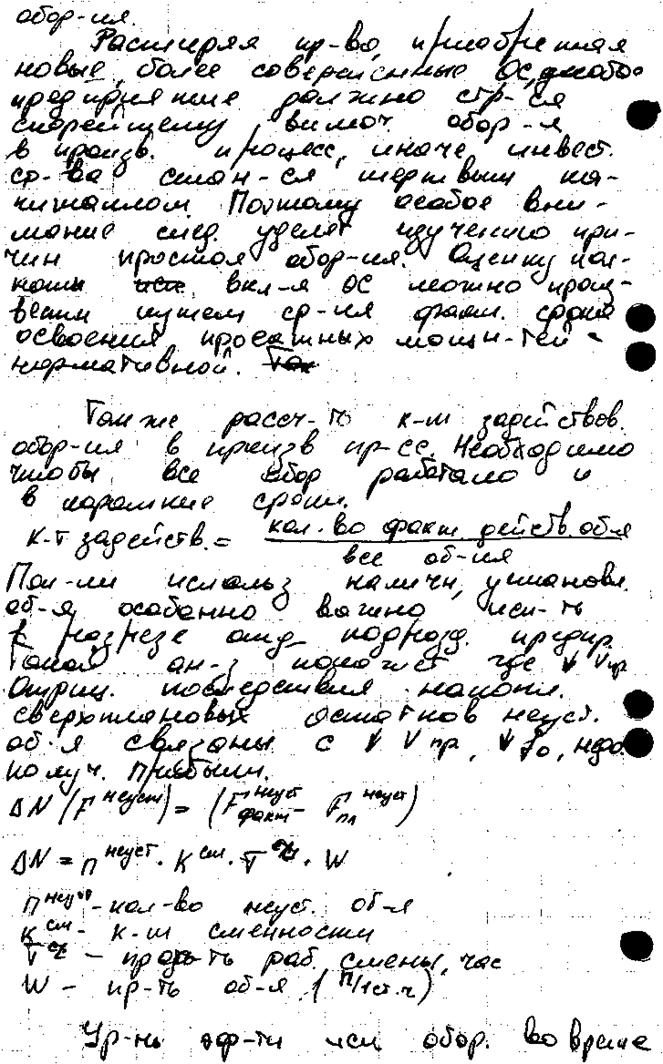 обор-ия.
Расширяя пр-во, приобретая
новые, более совершенные ОС,
предприятие должно стр-ся
скорейшему включ. обор-я
в произв. процесс, иначе инвест.
ср-ва стан-ся мертвым ка-
питаллом. Поэтому особое вни-
мание след. уделят изучению при-
чин простоя обор-ия. Оценку пол-
ноты вкл-я ОС можно произ-
вести путем ср-ия факт. срока
освоения проектных мощн-тей с
нормативной.
Также рассч-ть к-т задействов.
обор-ия в произв пр-се. Необходимо
чтобы все обор работало и
в короткие сроки.
к-т задейств. = кол-во факт действ. об-я
все об-ия
Пок-ли использ наличн, установл.
об-я особенно важно исп-ть
в разрезе отд подразд. предпр.
Такой ан-з покажет где ↓ Vпр
Отриц. последствия накопл.
сверхплановых остатков неуст.
об-я связаны с ↓ Vпр, ↓ fo, недо
получ. прибыли.
ΔN (F неуст) = (F неуст факт - F неуст пл)
ΔN = n неуст · K см · T · W
n неуст - кол-во неуст. об-я
K см - к-т сменности
T - прод-ть раб. смены, час
W - пр-ть об-я (п/1ст.ч)
Ур-нь эф-ти исп обор. во време